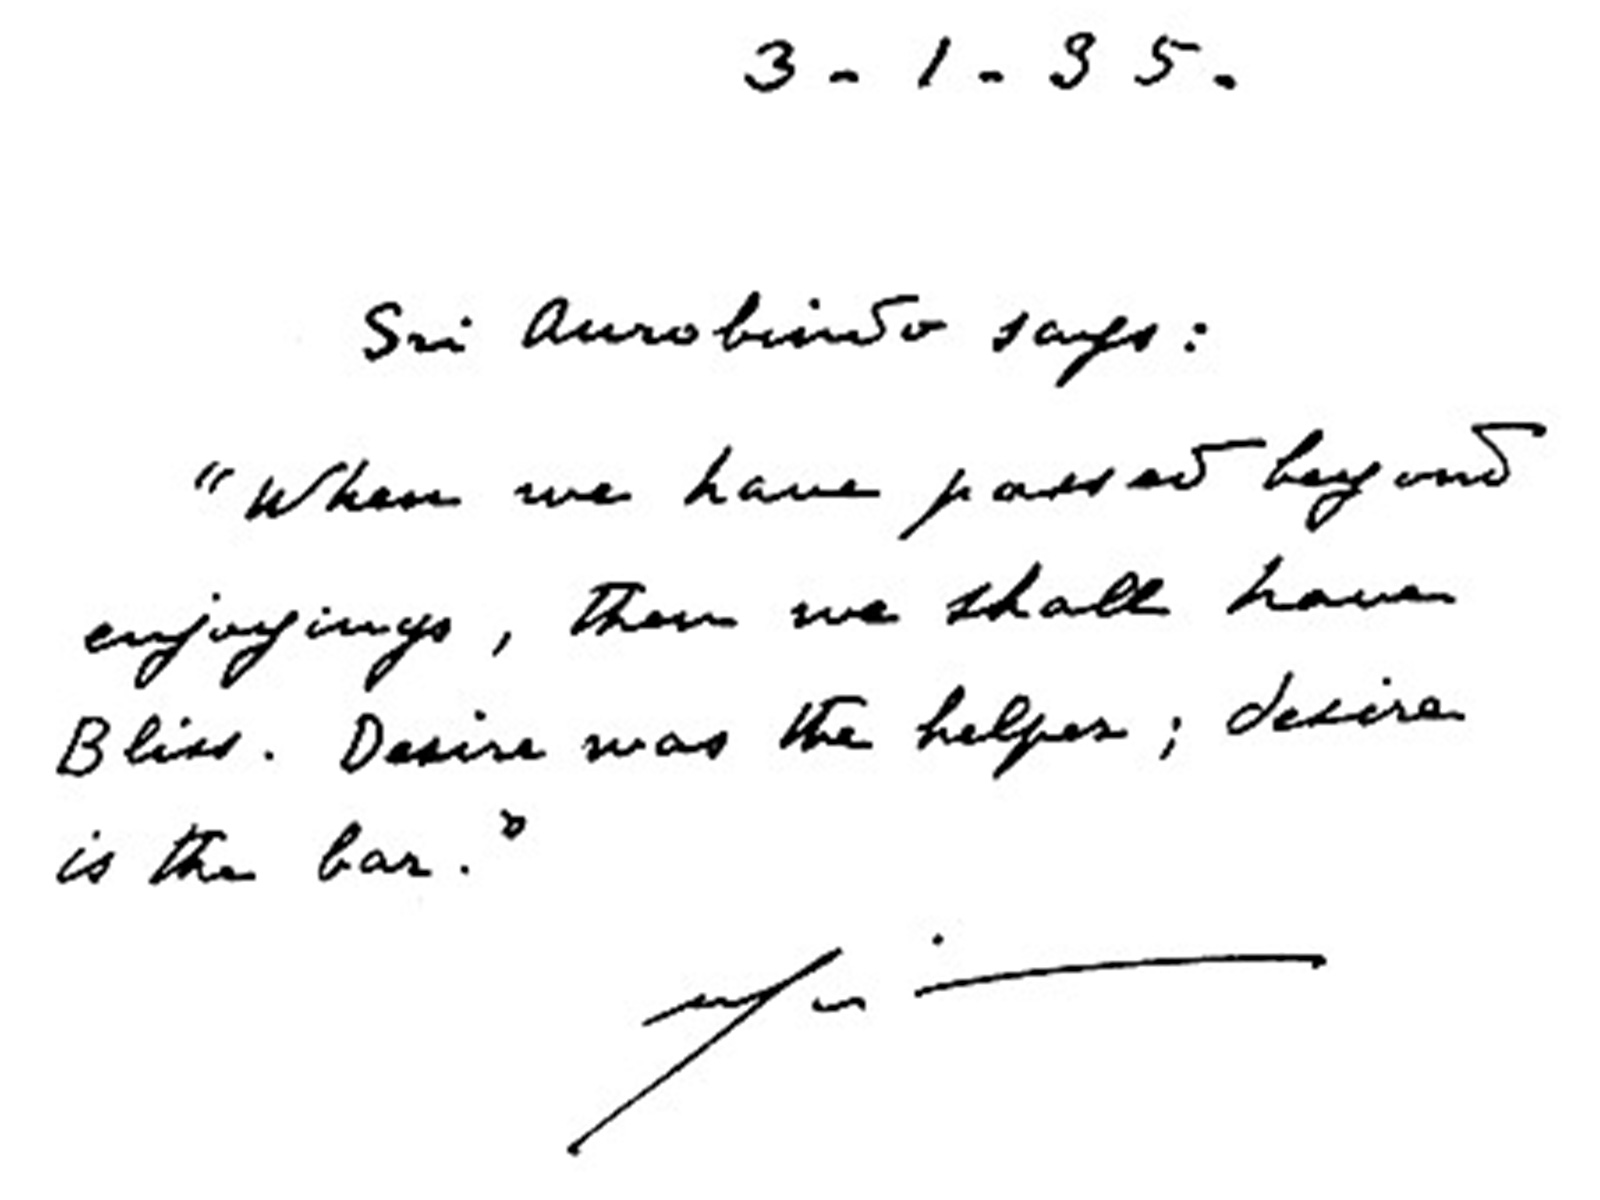 3-1-35.
Sri Aurobindo says:
"When we have passed beyond
enjoyings, then we shall have
Bliss. Desire was the helper; desire
is the bar."